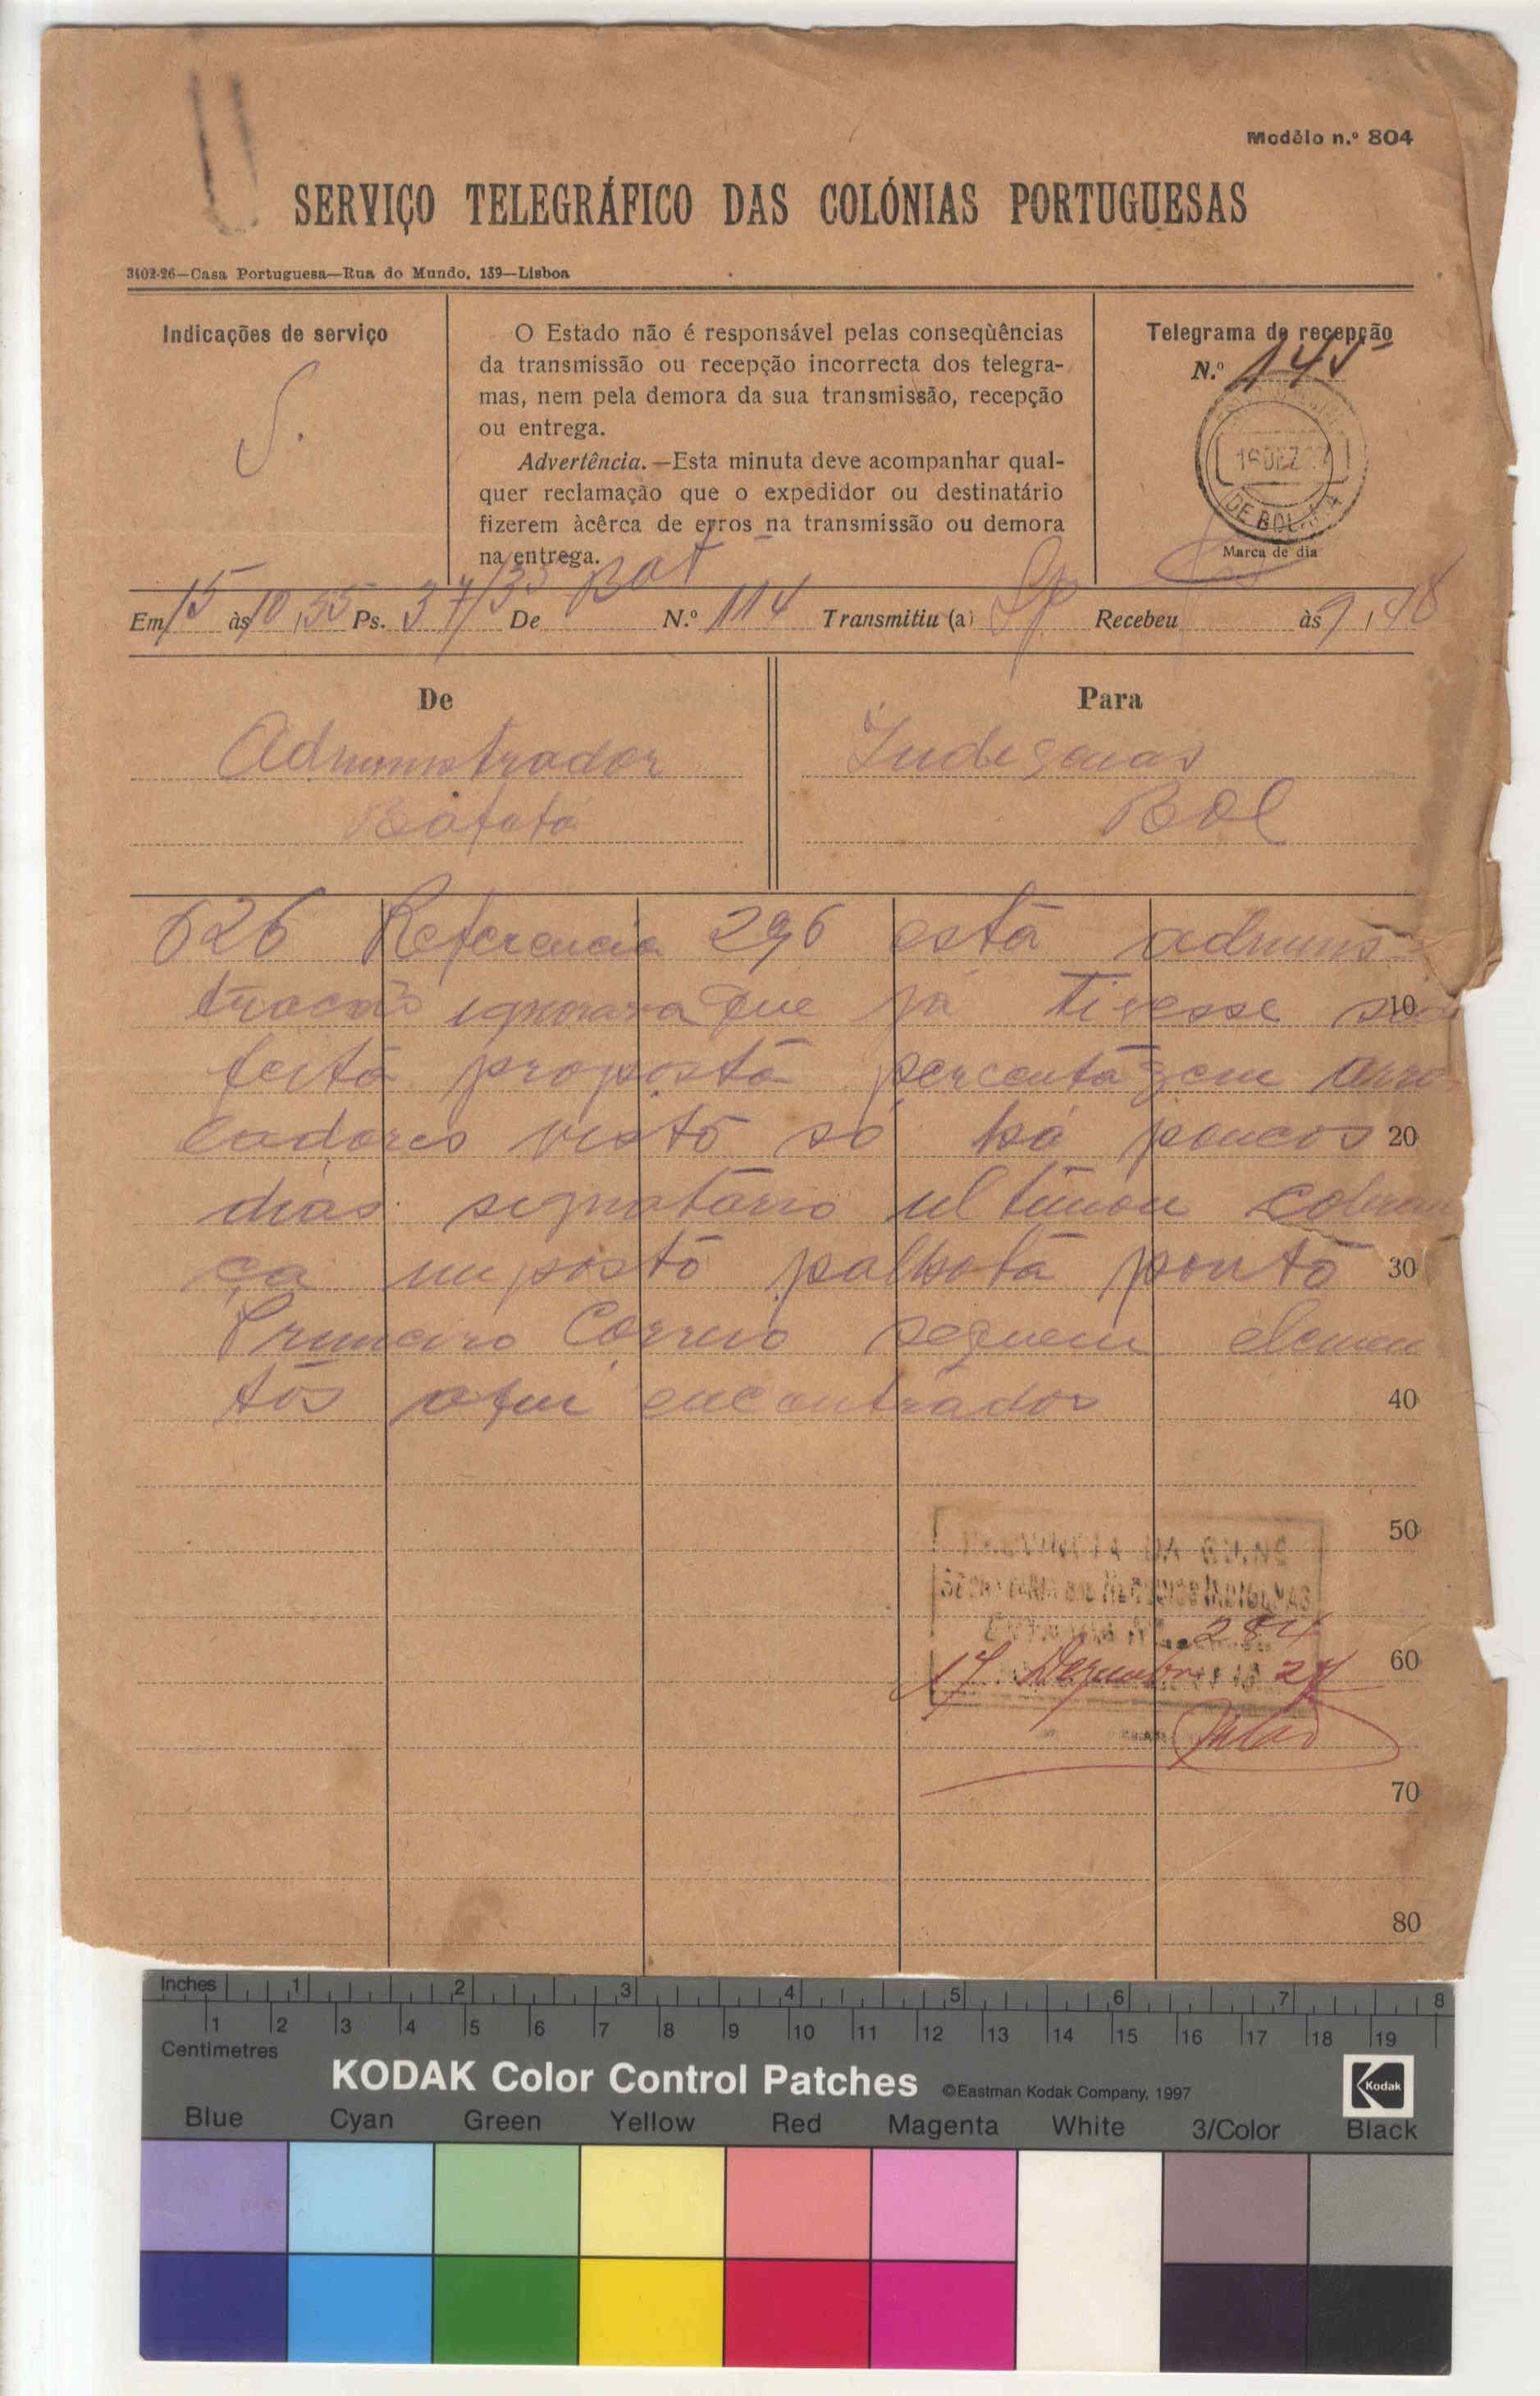 Modêlo n.º 804
SERVIÇO TELEGRÁFICO DAS COLÓNIAS PORTUGUESAS
3402-26—Casa Portuguesa—Rua do Mundo, 139—Lisboa
Indicações de serviço
S.
O Estado não é responsável pelas conseqùências
da transmissão ou recepção incorrecta dos telegra-
mas, nem pela demora da sua transmissão, recepção
ou entrega.
Advertência.—Esta minuta deve acompanhar qual-
quer reclamação que o expedidor ou destinatário
fizerem àcêrca de erros na transmissão ou demora
na entrega.
Telegrama de recepção
N.º
DEZ
DE BOLAMA
Marca de dia
Em 15 às 10,55 Ps. 37/35 De Bat N.º 114 Transmitiu (a) Recebeu às 9,48
De
Administrador
Bafata
Para
Indegenas
Bol
626 Referencia 296 está adminis
tracão ignorava que já tivesse sido
feita proposta percentagem arro
ladores visto só há poucos
dias signatário ultimou cobran
ça imposto palhota ponto
Primeiro Correio seguem elemen
tos aqui encontrados
10
20
30
40
50
60
70
80
SECRETARIA DOS NEGOCIOS INDIGENAS
284
17 Dezembro 27
Inches 1 2 3 4 5 6 7 8
1 2 3 4 5 6 7 8 9 10 11 12 13 14 15 16 17 18 19
Centimetres
KODAK Color Control Patches ©Eastman Kodak Company, 1997 Kodak
Blue Cyan Green Yellow Red Magenta White 3/Color Black